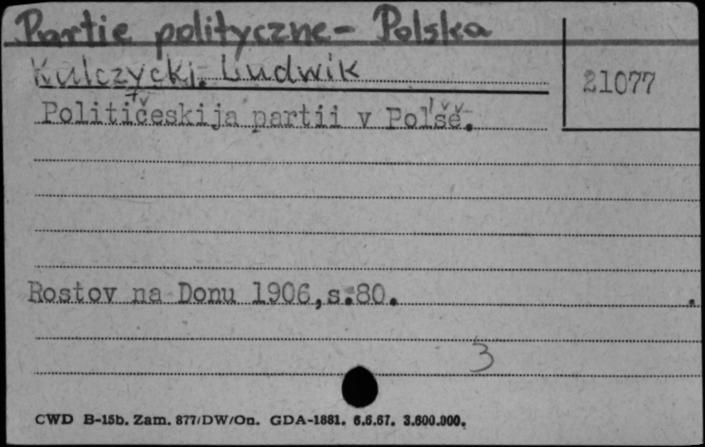 Partie polityczne - Polska
Kulczycki. Ludwik
21077
Političeskija partii v Pol'šě.
Rostov na Donu 1906,s.80.
3
CWD B-15b. Zam. 877/DW/On. GDA-1881. 6.6.67. 3.600.000.